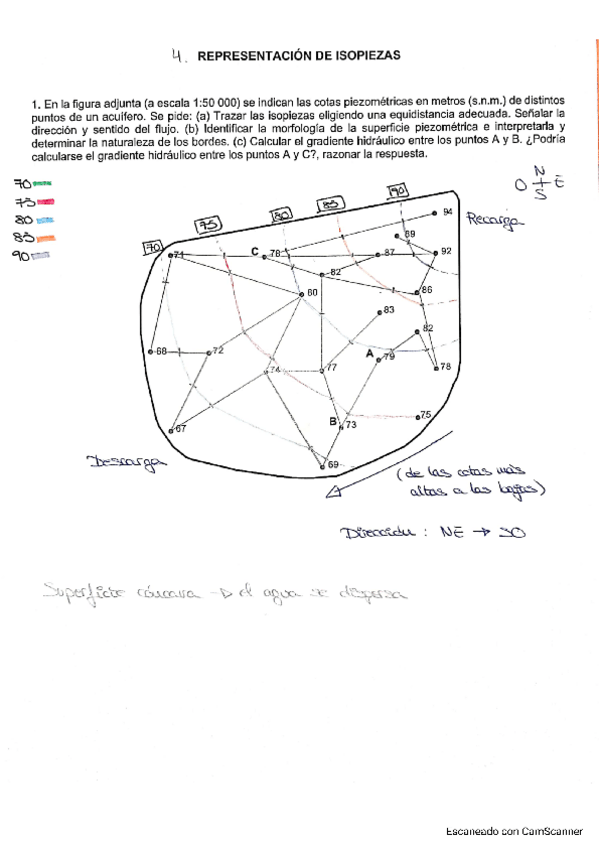 4. REPRESENTACIÓN DE ISOPIEZAS
1. En la figura adjunta (a escala 1:50 000) se indican las cotas piezométricas en metros (s.n.m.) de distintos
puntos de un acuífero. Se pide: (a) Trazar las isopiezas eligiendo una equidistancia adecuada. Señalar la
dirección y sentido del flujo. (b) Identificar la morfología de la superficie piezométrica e interpretarla y
determinar la naturaleza de los bordes. (c) Calcular el gradiente hidráulico entre los puntos A y B. ¿Podría
calcularse el gradiente hidráulico entre los puntos A y C?, razonar la respuesta.
70
75
80
85
90
N
O E
S
70 75 80 85 90
94
Recarga
89
71 C 78 87 92
82
80 86
83
82
68 72 A 79
74 77 78
75
B 73
67
69
Descarga
(de las cotas más
altas a las bajas)
Dirección: NE → SO
Superficie cóncava → el agua se dispersa
Escaneado con CamScanner